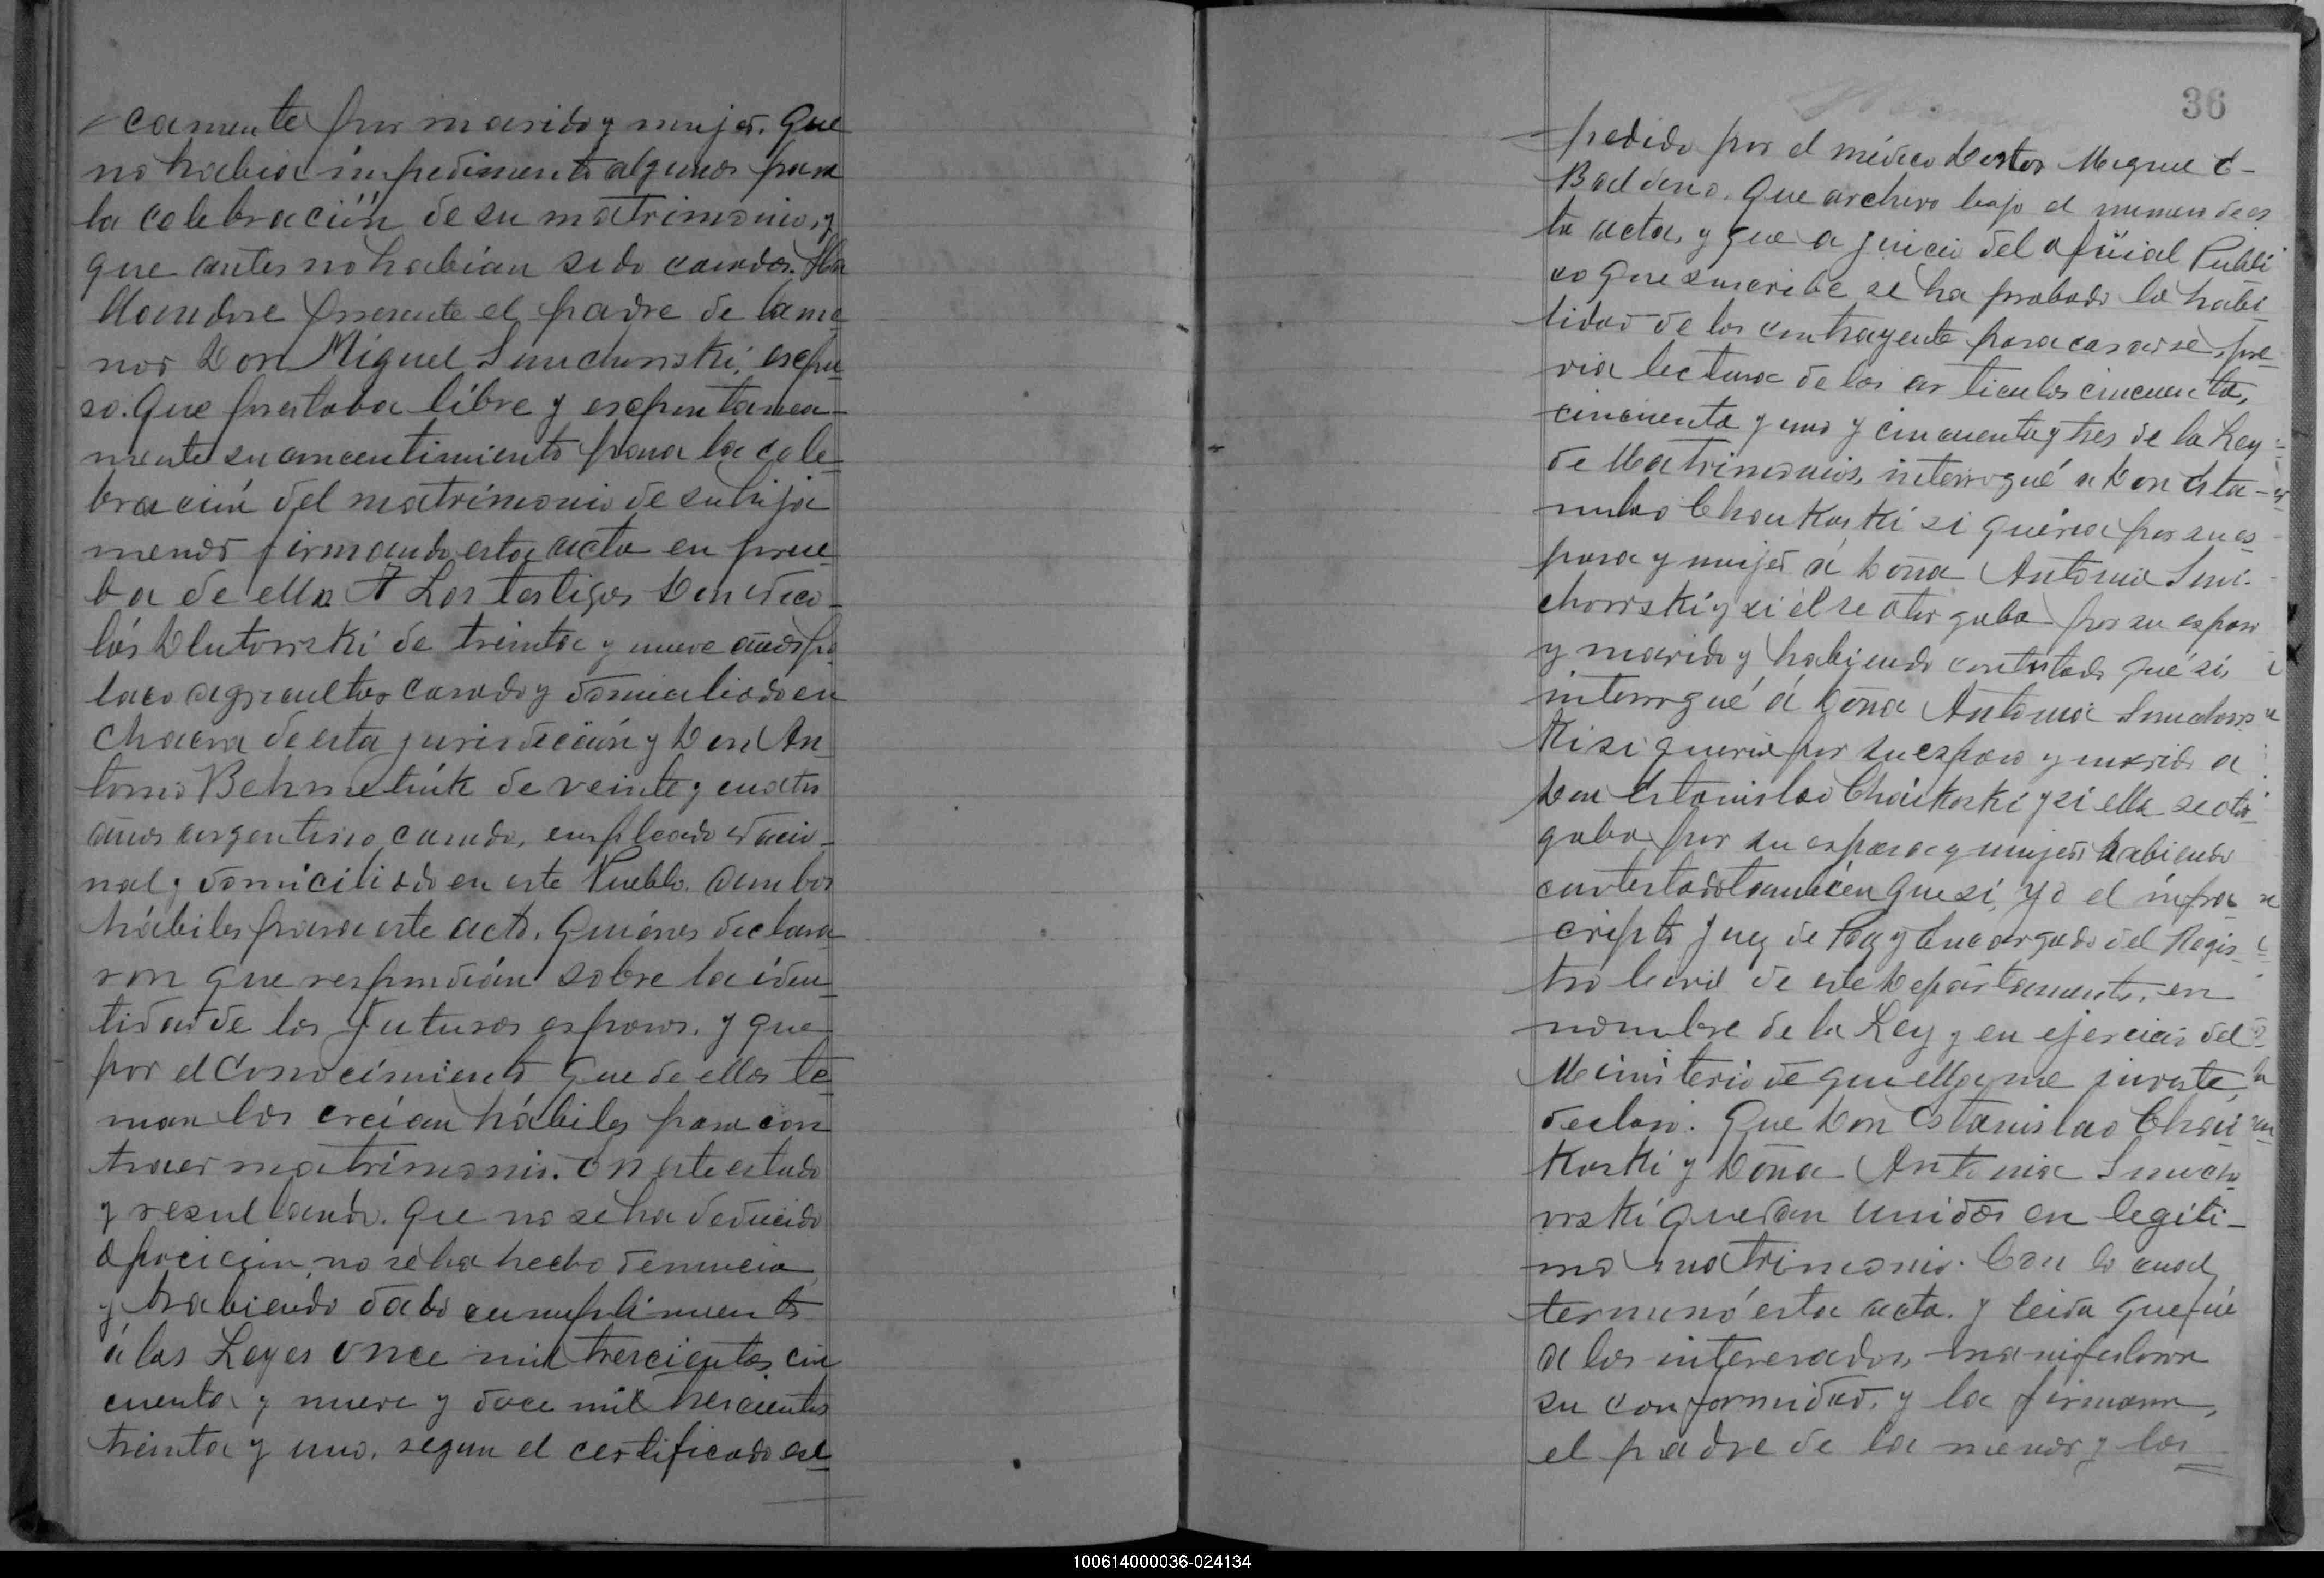 camente por marido y mujer. Que
no habia impedimento algunos para
la celebración de su matrimonio, y
que antes no habían sido casados. Ha
llandose presente el padre de la me
nor Don Miguel Smuchorski, expu
so. Que prestaba libre y expontanea-
mente su consentimiento para la cele
bración del matrimonio de su hija
menor firmando esta acta en prue
ba de ella Los testigos Don Nico-
lás Dlutowski de treinta y nueve años po
laco agricultor casado y domiciliado en
Chacra de esta jurisdicción y Don An
tonio Behmetiuk de veinte y cuatro
años argentino casado, empleado Nacio-
nal y domiciliado en este Pueblo. ambos
hábiles para este acto. Quiénes declara
ron que respondían sobre la iden
tidad de los futuros esposos. y que
por el conocimiento que de ellos te
nian los creían hábiles para con
traer matrimonio. En este estado
y resultando. Que no se ha deducido
oposicion, no se ha hecho denuncia
y habiendo dado cumplimiento
á las Leyes once mil trescientos cin
cuenta y nueve y doce mil trescientos
treinta y uno. segun el certificado ex
36
pedido por el médico Doctor Miguel C-
Baldino. Que archivo bajo el numero de es
ta acta, y que a juicio del oficial Publi
co que suscribe se ha probado la habi
lidad de los contrayente para casarse, pre
via lectura de los articulos cincuenta,
cincuenta y uno y cincuenta y tres de la Ley
de Matrimonios, interrogué a Don Esta-
nislao Chaikoski si quería por su es
posa y mujer á Doña Antonia Smu-
chorski y si él se otorgaba por su esposo
y marido y habiendo contestado qué sí,
interrogué á Doña Antonia Smuchors
ki si queria por su esposo y marido a
Don Estanislao Chaikoski y si ella se otor
gaba por su esposa y mujer habiendo
contestado tambien que sí, Yo el infra
cripto Juez de Paz y Encargado del Regis
tro Civil de este Departamento, en
nombre de la Ley y en ejercicio del
Ministerio de que ella me inviste,
declaro. Que Don Estanislao Chai
koski y Doña Antonia Smucho
rski quedan unidos en legiti-
mo matrimonio. Con lo cual
terminó esta acta. y leida que fué
a los interesados, manifestaron
su conformidad, y la firmaron,
el padre de la menor y los
100614000036-024134